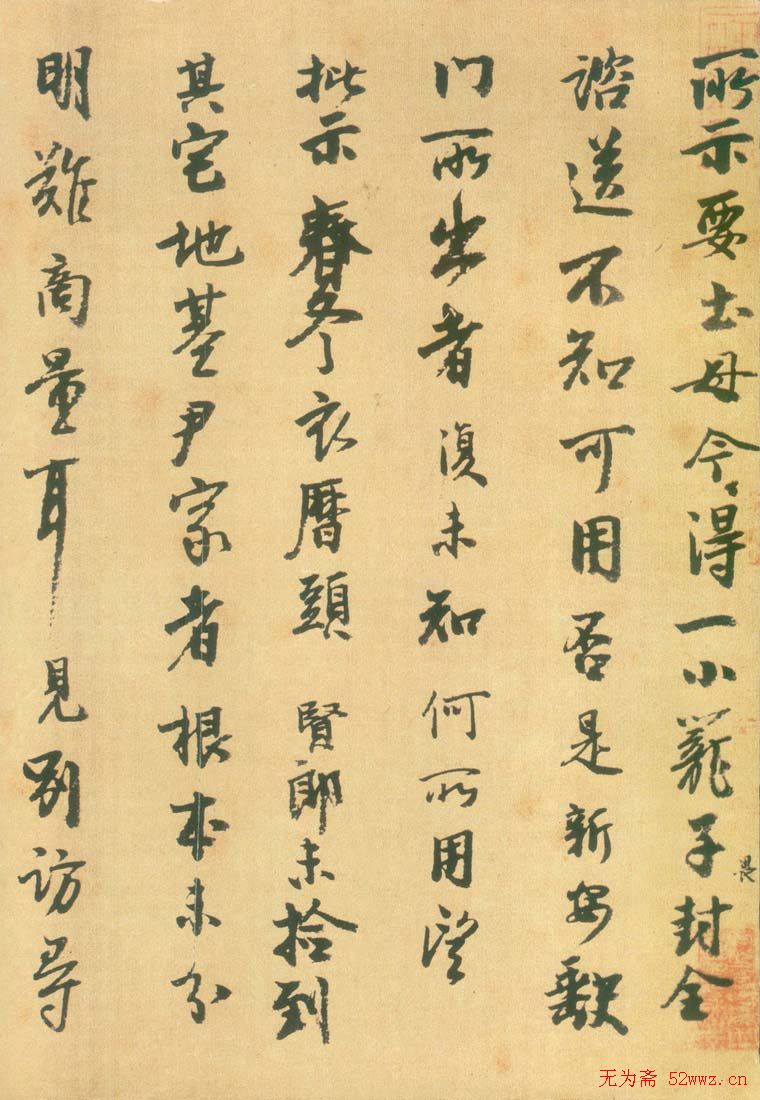 所示要土母今得一小籠子封全
諮送不知可用否是新安缺
門所出者復未知何所用望
批示春冬衣曆頭賢郎未撿到
其宅地基尹家者根本未分
明難商量耳見別訪尋
无为斋 52wwz.cn